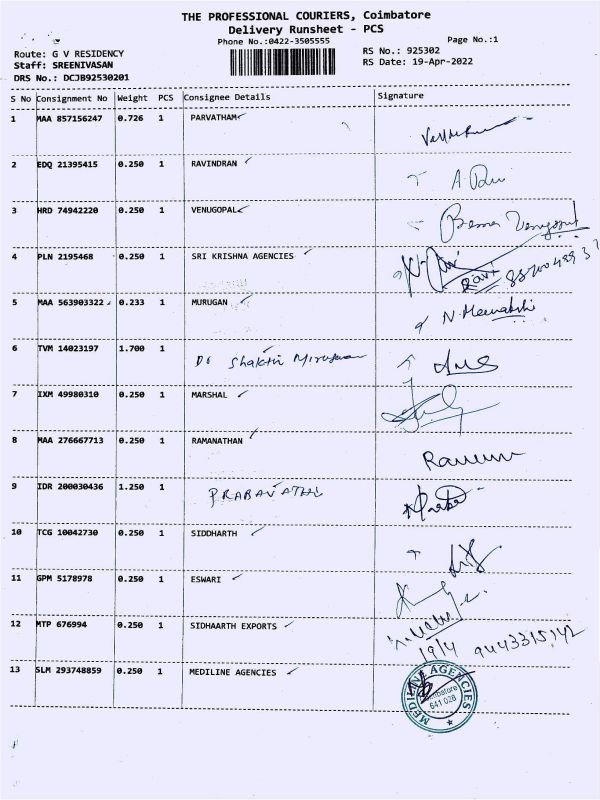 THE PROFESSIONAL COURIERS, Coimbatore
Delivery Runsheet - PCS
Phone No.:0422-3505555
Page No.:1
Route: G V RESIDENCY
RS No.: 925302
Staff: SREENIVASAN
RS Date: 19-Apr-2022
DRS No.: DCJB92530201
S No Consignment No Weight PCS Consignee Details Signature
1 MAA 857156247 0.726 1 PARVATHAM
2 EDQ 21395415 0.250 1 RAVINDRAN
3 HRD 74942220 0.250 1 VENUGOPAL
4 PLN 2195468 0.250 1 SRI KRISHNA AGENCIES
Ravi
5 MAA 563903322 0.233 1 MURUGAN N. Meenakshi
6 TVM 14023197 1.700 1 Dr Shakthi
7 IXM 49980310 0.250 1 MARSHAL
8 MAA 276667713 0.250 1 RAMANATHAN
9 IDR 200030436 1.250 1 PRABAVATHI
10 TCG 10042730 0.250 1 SIDDHARTH
11 GPM 5178978 0.250 1 ESWARI
12 MTP 676994 0.250 1 SIDHAARTH EXPORTS
19/4 9443315142
13 SLM 293748859 0.250 1 MEDILINE AGENCIES
MEDILINE AGENCIES
Coimbatore
641 028